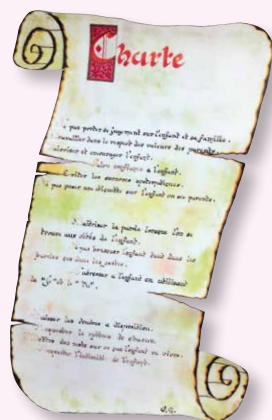 Charte
pas porter de jugement sur l'enfant et sa famille.
travailler dans le respect des valeurs des parents.
valoriser et encourager l'enfant.
confiance à l'enfant.
éviter les surnoms
pas poser une étiquette sur l'enfant ou ses parents.
maîtriser la parole lorsque l'on se
trouve aux côtés de l'enfant.
pas brusquer l'enfant tant dans les
paroles que dans les gestes.
adresser à l'enfant en utilisant
le "Je" et le
laisser les doudous à disposition.
respecter le rythme de chacun.
mettre des mots sur ce que l'enfant va vivre.
respecter l'intimité de l'enfant.